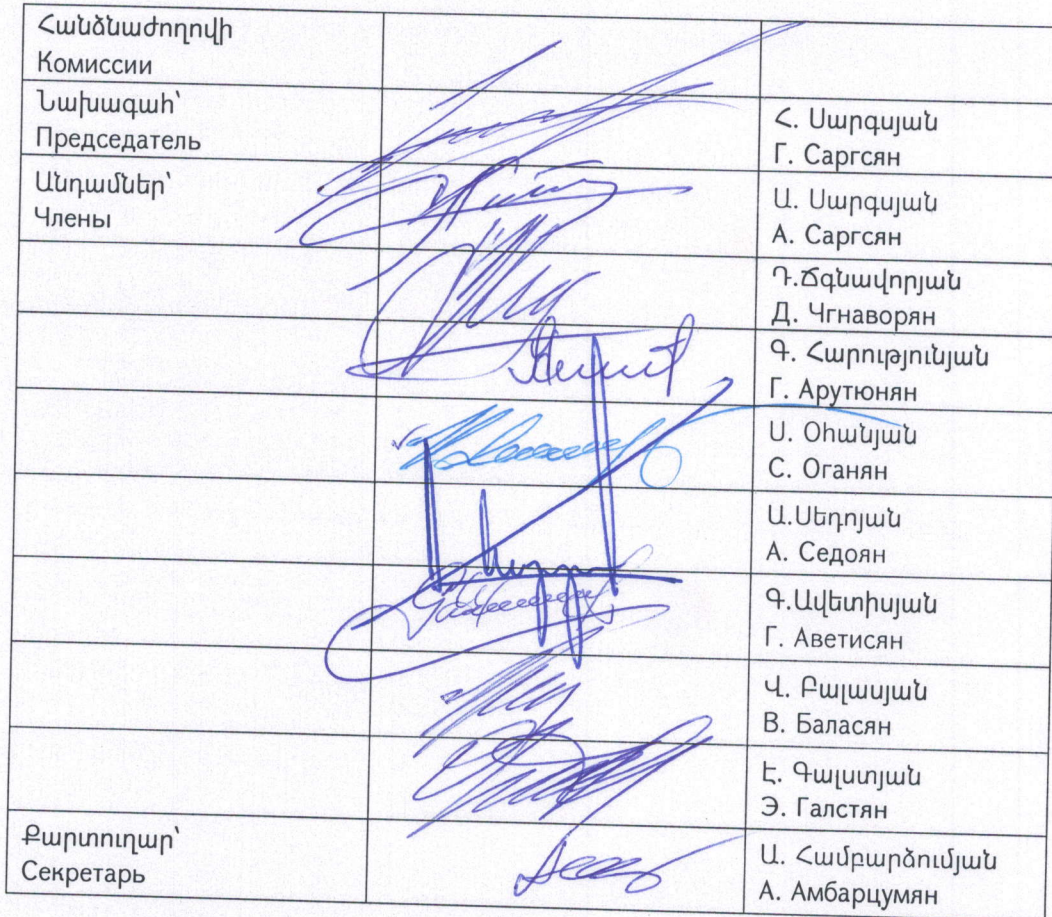 Հանձնաժողովի
Комиссии
Նախագահ՝
Председатель
Հ. Սարգսյան
Г. Саргсян
Անդամներ՝
Члены
Ա. Սարգսյան
А. Саргсян
Դ.Ճգնավորյան
Д. Чгнаворян
Գ. Հարությունյան
Г. Арутюнян
Ս. Օհանյան
С. Оганян
Ա.Սեդոյան
А. Седоян
Գ.Ավետիսյան
Г. Аветисян
Վ. Բալասյան
В. Баласян
Է. Գալստյան
Э. Галстян
Քարտուղար՝
Секретарь
Ա. Համբարձումյան
А. Амбарцумян